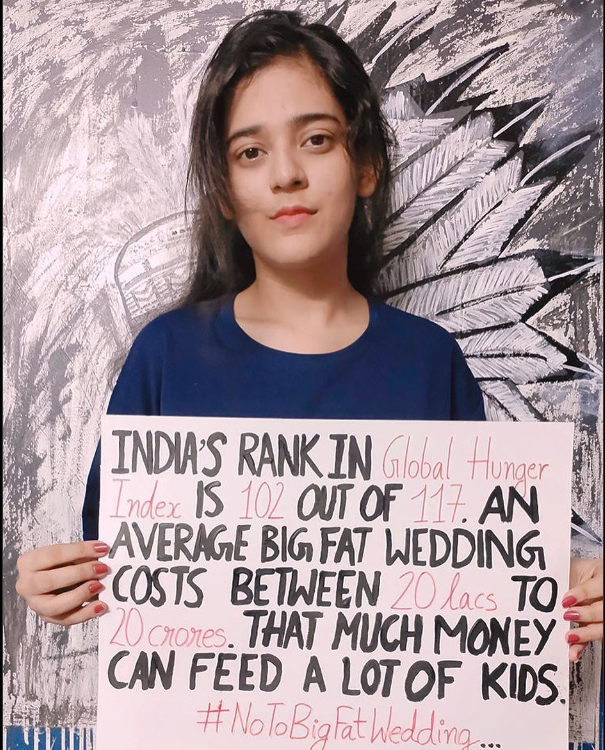 INDIA'S RANK IN Global Hunger
Index IS 102 OUT OF 117. AN
AVERAGE BIG FAT WEDDING
COSTS BETWEEN 20 lacs TO
20 crores. THAT MUCH MONEY
CAN FEED A LOT OF KIDS.
#NoToBigFatWedding...